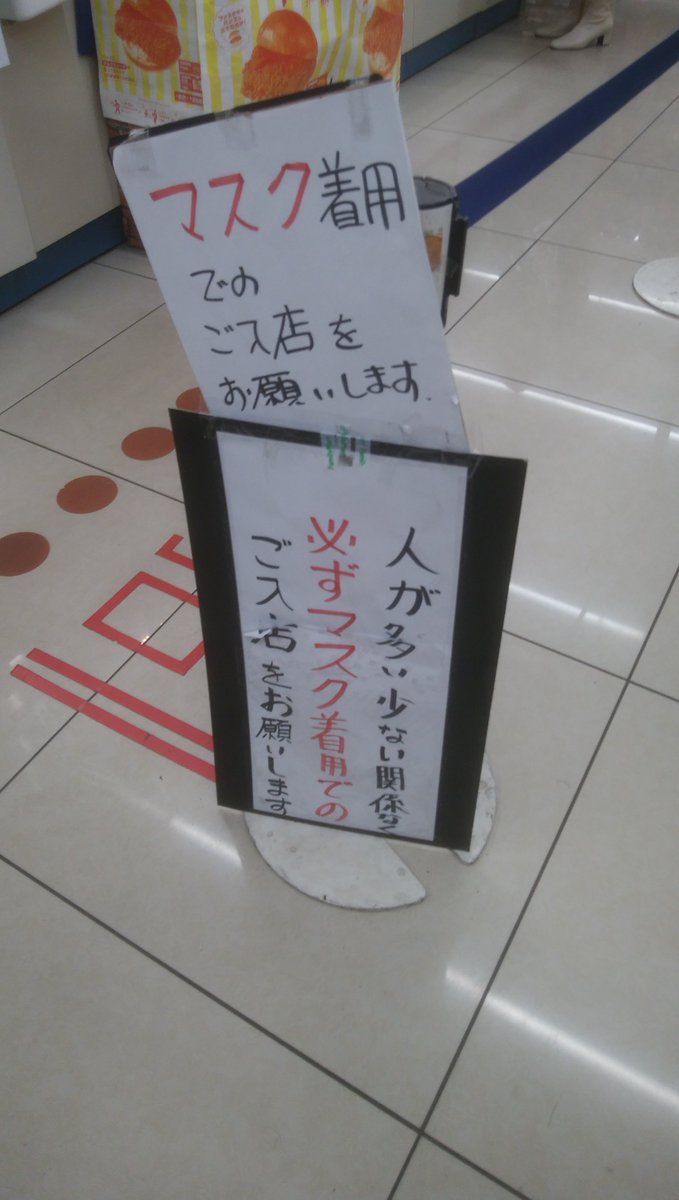 マスク着用
での
ご入店を
お願いします.
人が多い少ない関係なく
必ずマスク着用での
ご入店をお願いします